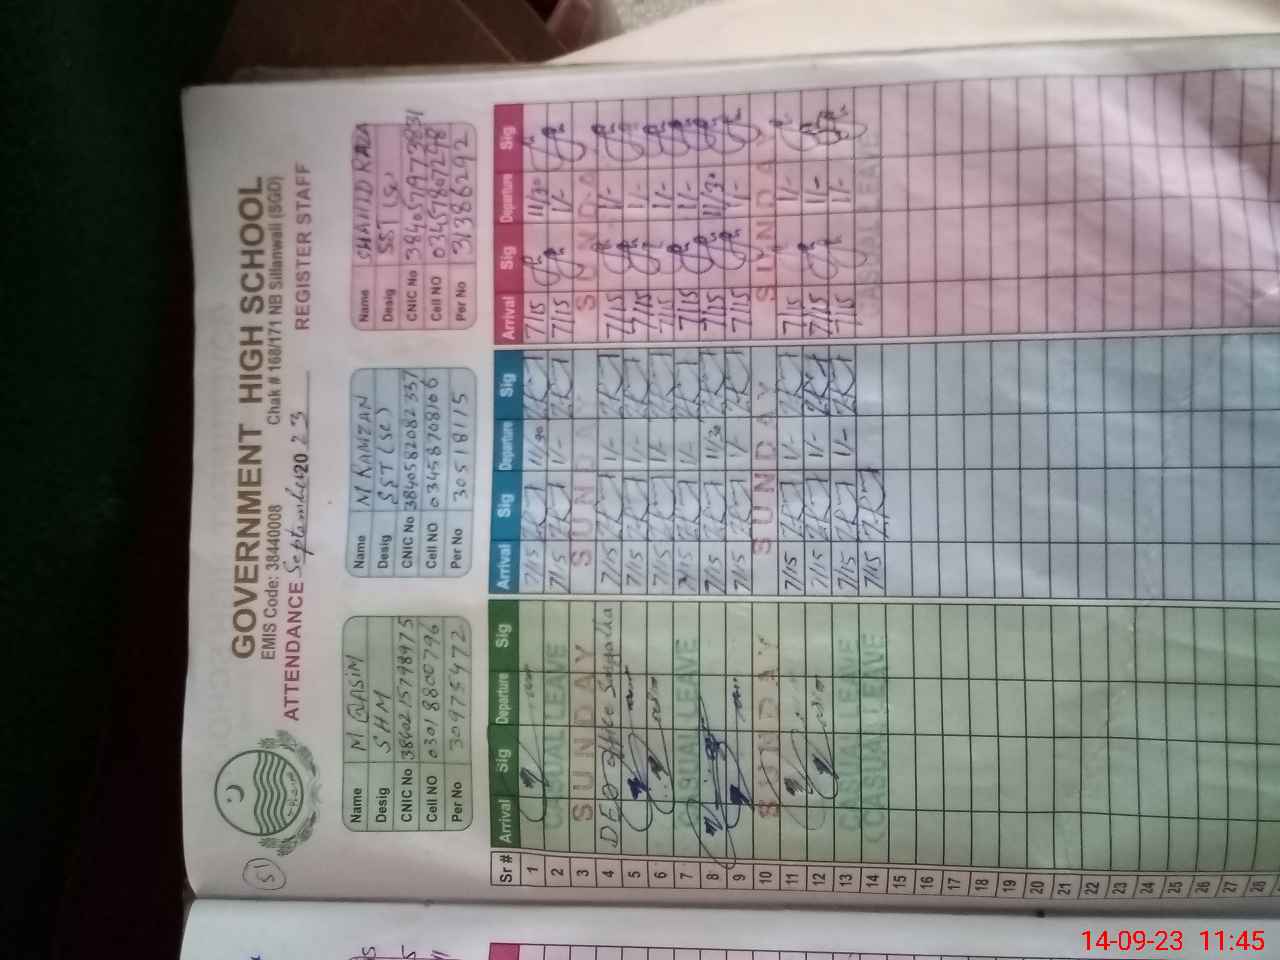 51
GOVERNMENT HIGH SCHOOL
EMIS Code: 38440008 Chak # 168/171 NB Sillanwali (SGD)
ATTENDANCE September 2023 REGISTER STAFF
Name M QASIM
Desig SHM
CNIC No 3840215798975
Cell NO 03018800796
Per No 30975472
Name M RAMZAN
Desig SST (SC)
CNIC No 3840582082337
Cell NO 03458708166
Per No 30518115
Name SHAHID RAZA
Desig SST (Sc)
CNIC No 3840519773831
Cell NO 03457807298
Per No 31386292
Sr # Arrival Sig Departure Sig Arrival Sig Departure Sig Arrival Sig Departure Sig
1 7/15 11/30 7/15 11/30
2 CASUAL LEAVE 7/15 1/- 7/15 1/-
3 SUNDAY SUNDAY SUNDAY
4 DEO office Sargodha 7/15 1/- 7/15 1/-
5 7/15 1/- 7/15 1/-
6 7/15 1/- 7/15 1/-
7 CASUAL LEAVE 7/15 1/- 7/15 1/-
8 7/15 11/30 7/15 11/30
9 7/15 1/- 7/15 1/-
10 SUNDAY SUNDAY SUNDAY
11 7/15 1/- 7/15 1/-
12 7/15 1/- 7/15 1/-
13 CASUAL LEAVE 7/15 1/- 7/15 1/-
14 CASUAL LEAVE 7/15 CASUAL LEAVE
15
16
17
18
19
20
21
22
23
24
25
26
27
28
14-09-23 11:45